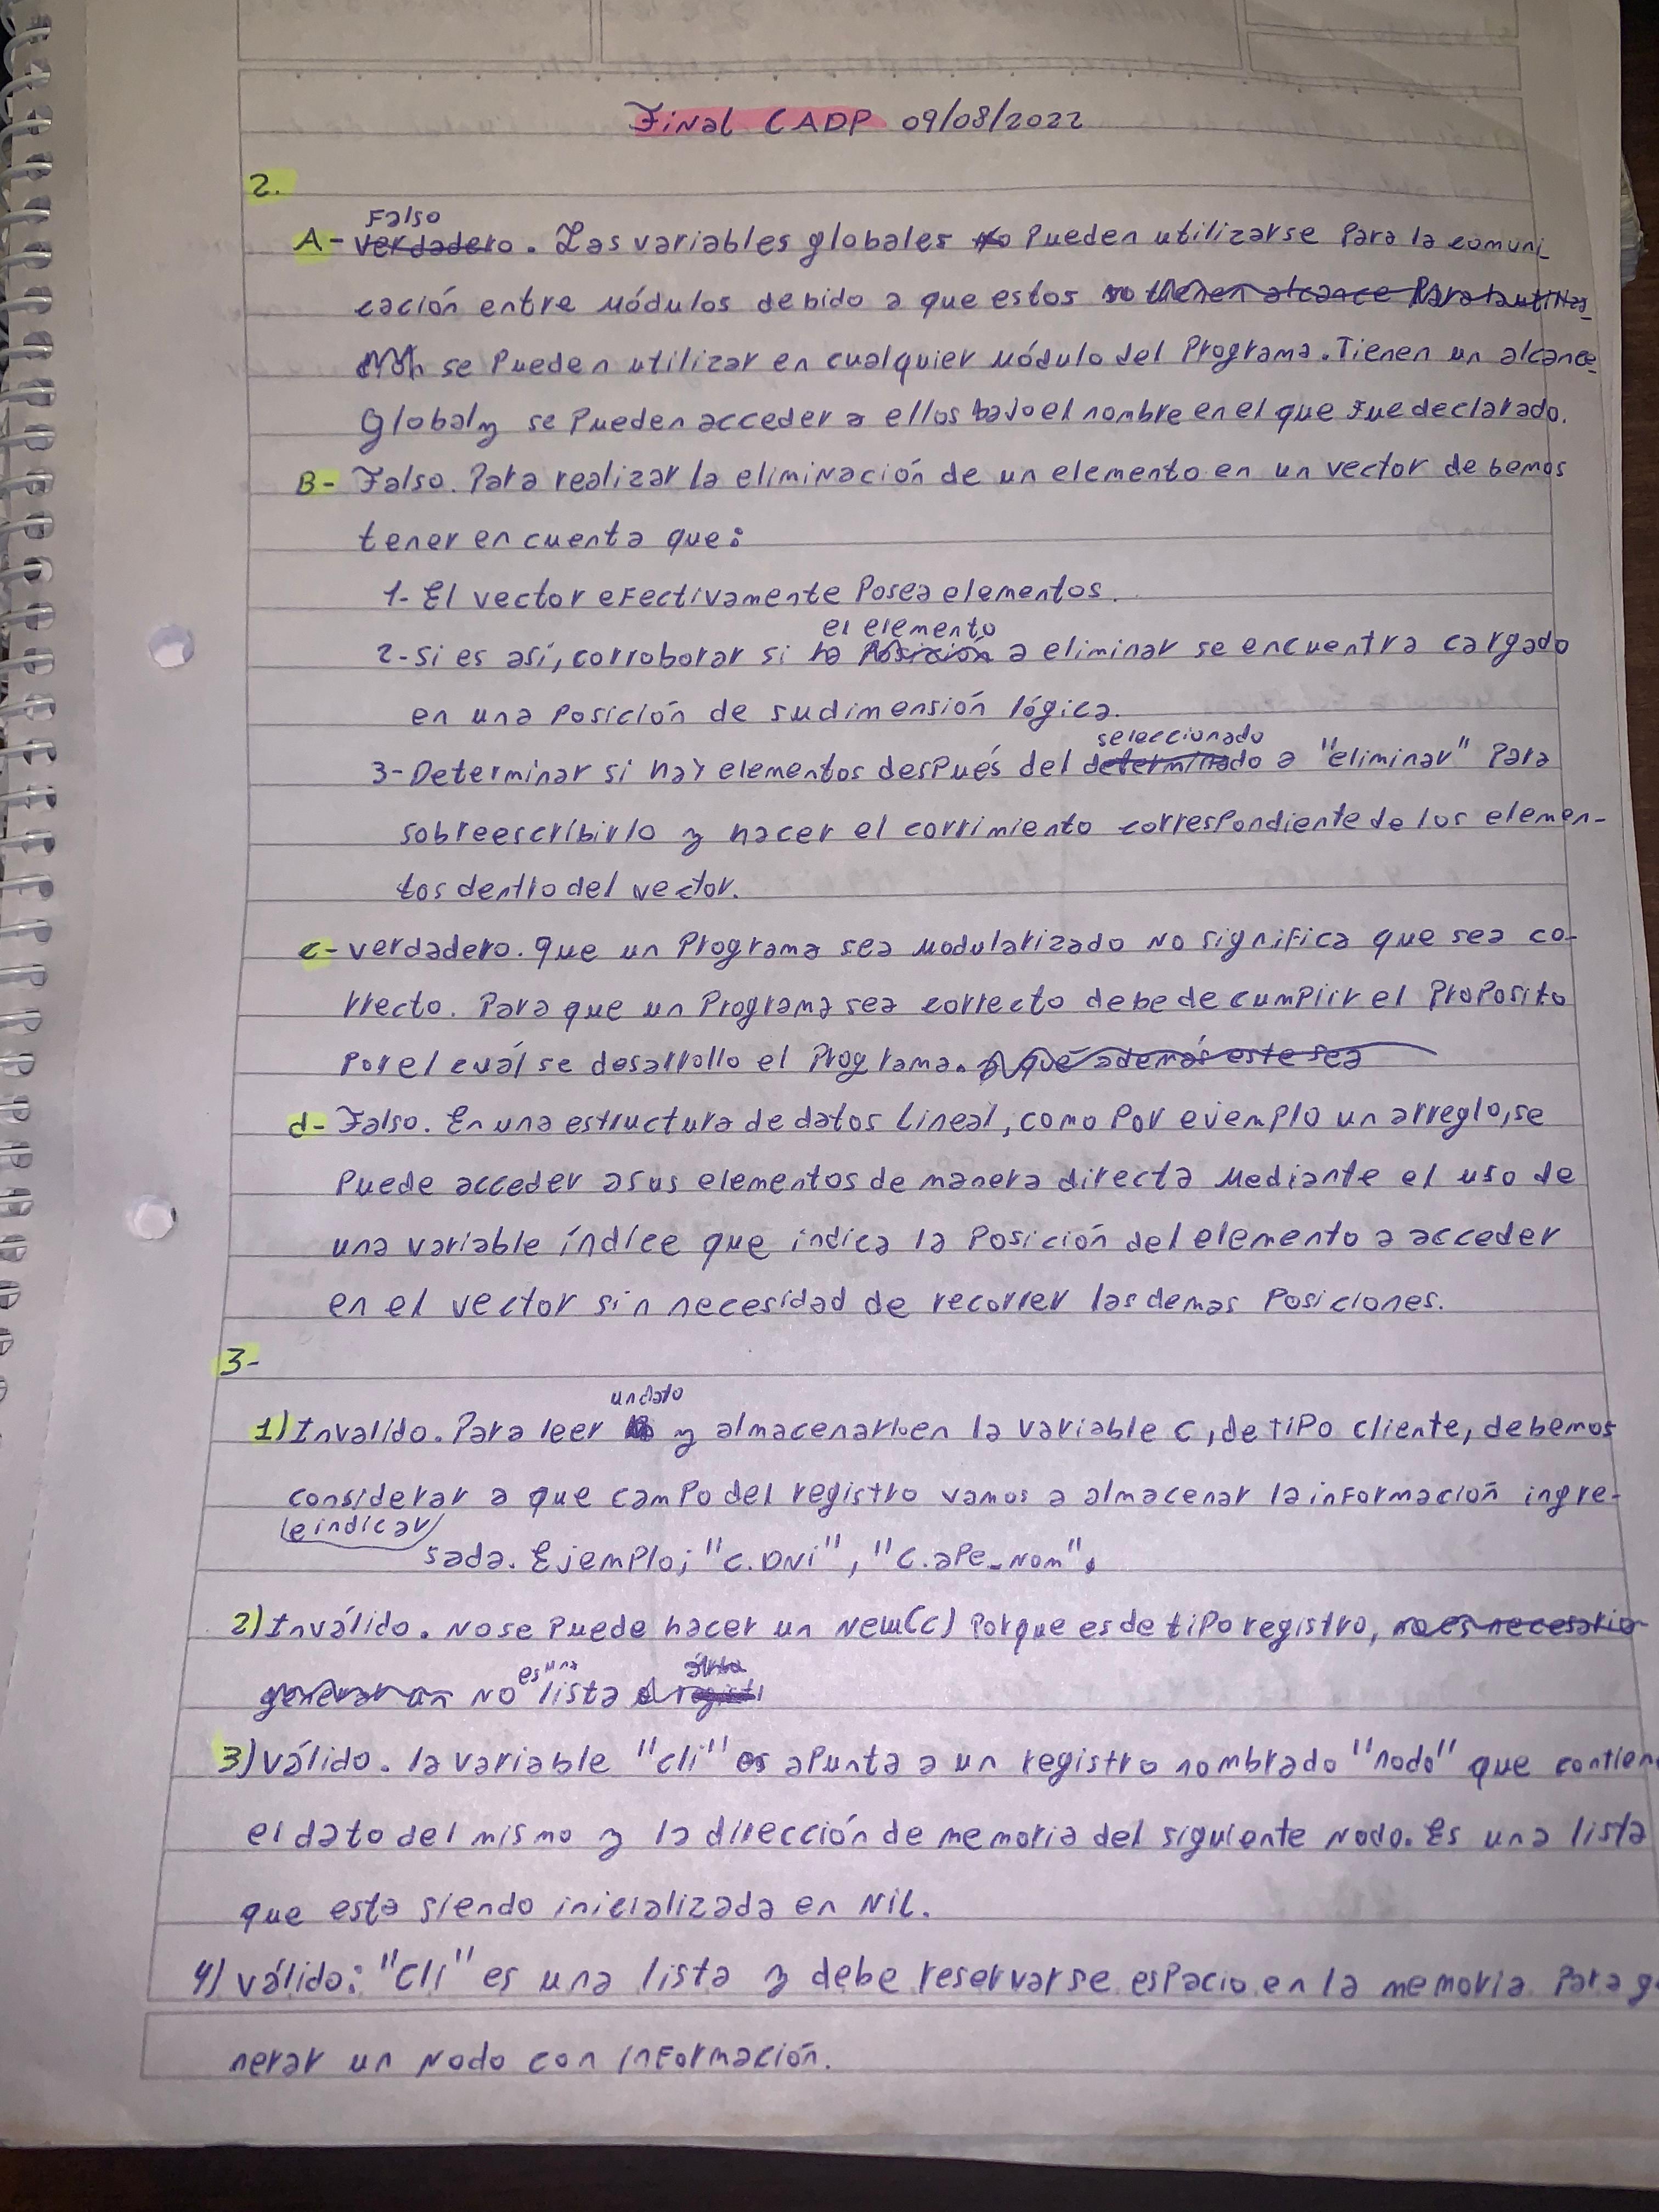 Final CADP 09/08/2022
2.
Falso
A- verdadero. Las variables globales no pueden utilizarse para la comuni_
cación entre módulos debido a que estos no tienen alcance para la utiliza_
se pueden utilizar en cualquier módulo del programa. Tienen un alcance
global y se pueden acceder a ellos bajo el nombre en el que fue declarado.
B- Falso. Para realizar la eliminación de un elemento en un vector debemos
tener en cuenta que:
1- El vector efectivamente posea elementos.
el elemento
2- Si es así, corroborar si la posición a eliminar se encuentra cargado
en una posición de su dimensión lógica.
seleccionado
3- Determinar si hay elementos después del determinado a "eliminar" para
sobreescribirlo y hacer el corrimiento correspondiente de los elemen-
tos dentro del vector.
c- verdadero. que un programa sea modularizado no significa que sea co-
rrecto. Para que un programa sea correcto debe de cumplir el proposito
por el cuál se desarrollo el programa. y que además este sea
d- Falso. En una estructura de datos lineal, como por ejemplo un arreglo, se
puede acceder a sus elementos de manera directa mediante el uso de
una variable índice que indica la posición del elemento a acceder
en el vector sin necesidad de recorrer las demas posiciones.
3-
un dato
1) Invalido. Para leer y almacenarlo en la variable c, de tipo cliente, debemos
considerar a que campo del registro vamos a almacenar la información ingre-
e indicar
sada. Ejemplo; "c.DNi", "c.ape_nom".
2) Inválido. No se puede hacer un New(c) porque es de tipo registro, no es necesario
es una
generar un no lista
3) válido. la variable "cli" es apunta a un registro nombrado "nodo" que contien
el dato del mismo y la dirección de memoria del siguiente nodo. Es una lista
que esta siendo inicializada en Nil.
4) válido: "cli" es una lista y debe reservarse espacio en la memoria para g
nerar un nodo con información.